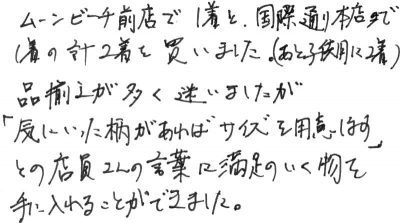 ムーンビーチ前店で1着と、国際通り本店で
1着の計2着を買いました。(あと子供用に2着)
品揃えが多く迷いましたが
「気にいった柄があればサイズを用意します」
との店員さんの言葉に満足のいく物を
手に入れることができました。